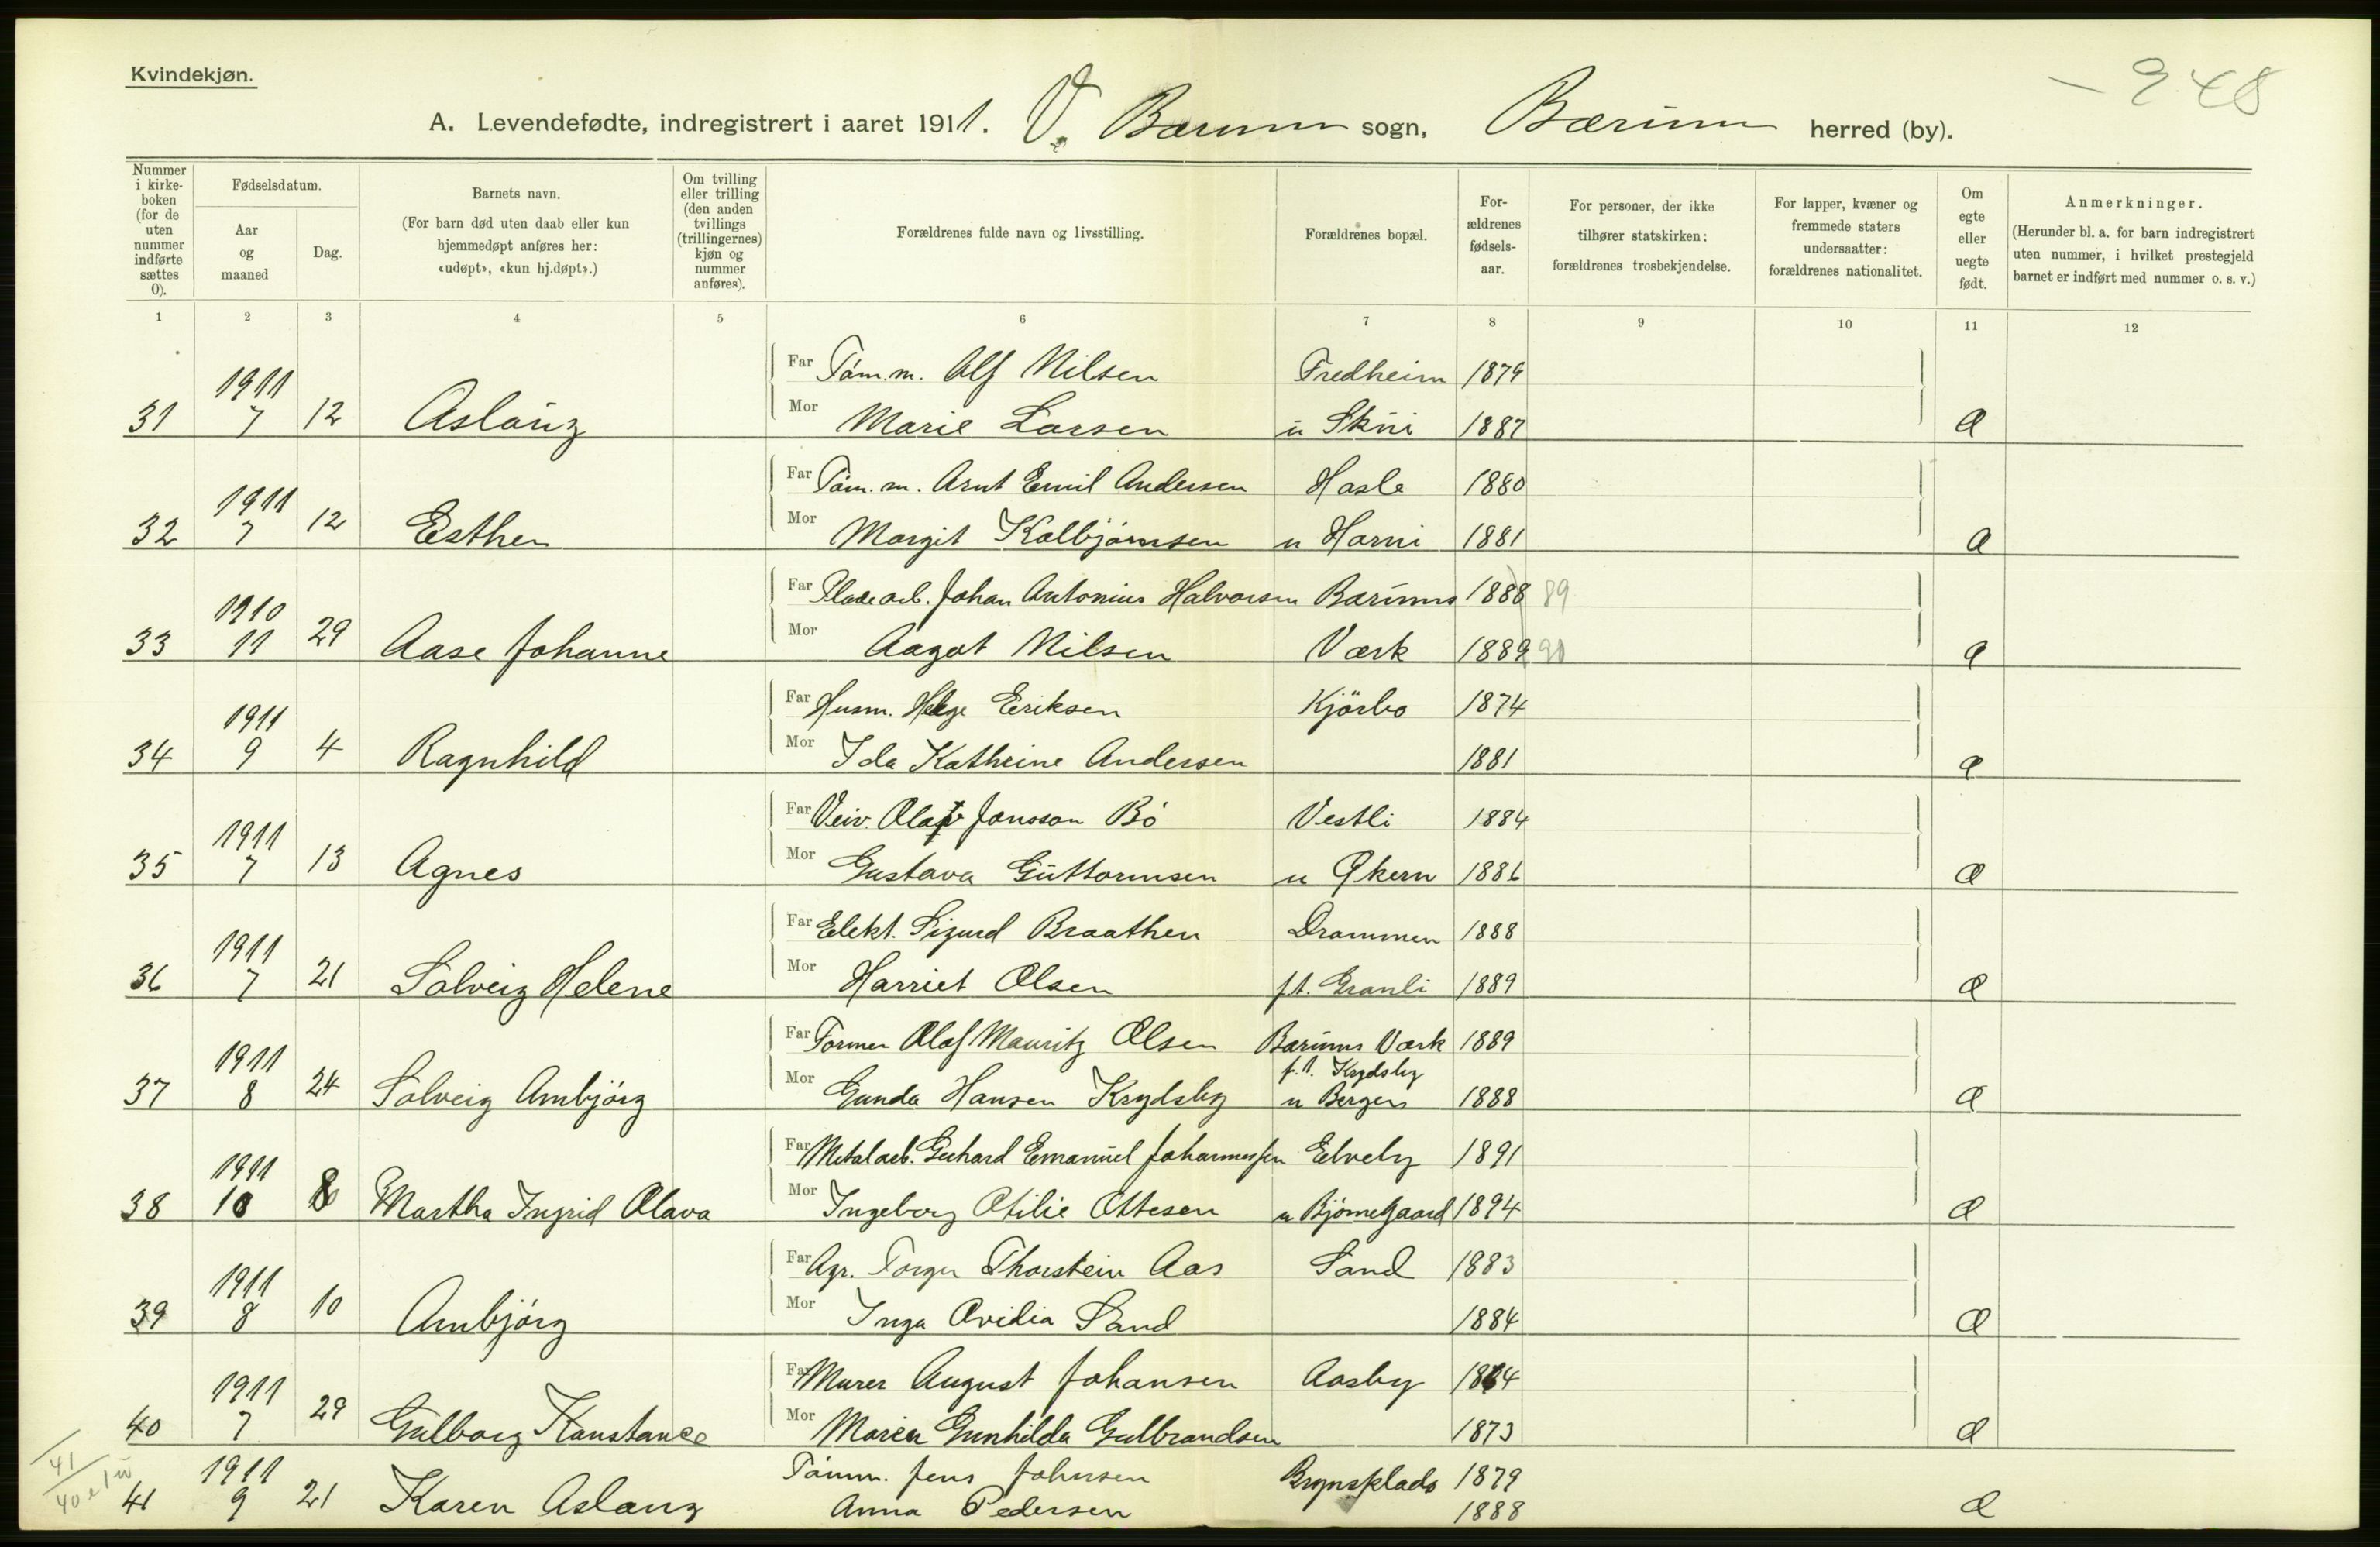 Kvindekjøn.
- 248
A. Levendefødte, indregistrert i aaret 1911. V. Bærum sogn, Bærum herred (by).
Nummer i kirkeboken (for de uten nummer indførte sættes 0).
Fødselsdatum.
Aar og maaned
Dag.
Barnets navn.
(For barn død uten daab eller kun hjemmedøpt anføres her: «udøpt», «kun hj.døpt».)
Om tvilling eller trilling (den anden tvillings (trillingernes) kjøn og nummer anføres).
Forældrenes fulde navn og livsstilling.
Forældrenes bopæl.
Forældrenes fødselsaar.
For personer, der ikke tilhører statskirken: forældrenes trosbekjendelse.
For lapper, kvæner og fremmede staters undersaatter: forældrenes nationalitet.
Om egte eller uegte født.
Anmerkninger.
(Herunder bl. a. for barn indregistrert uten nummer, i hvilket prestegjeld barnet er indført med nummer o. s. v.)
1 2 3 4 5 6 7 8 9 10 11 12
1911 Far Tøm.m. Alf Nilsen Fredheim 1879
31 7 12 Aslaug Mor Marie Larsen u Skui 1887 Æ
1911 Far Tøm.m. Arnt Emil Andersen Hasle 1880
32 7 12 Esther Mor Margit Kolbjørnsen u Horni 1881 Æ
1910 Far Pladearb. Johan Antonius Halvorsen Bærums 1888 89
33 11 29 Aase Johanne Mor Aagot Nilsen Værk 1889 90 Æ
1911 Far Husm. Helge Eriksen Kjörbo 1874
34 9 4 Ragnhild Mor Ida Kathrine Andersen 1881 Æ
1911 Far Veiv. Olav Jonsson Bö Vestli 1884
35 7 13 Agnes Mor Gustava Guttormsen u Økern 1886 Æ
1911 Far Elekt. Sigurd Braathen Drammen 1888
36 7 21 Solveig Helene Mor Harriet Olsen f.t. Granli 1889 Æ
1911 Far Former Olaf Mauritz Olsen Bærums Værk 1889
f.t. Krydsby
37 8 24 Solveig Ambjørg Mor Gunda Hansen Krydsby u Berger 1888 Æ
1911 Far Metalarb. Gerhard Emanuel Johannessen Elveby 1891
38 10 8 Martha Ingrid Olava Mor Ingeborg Otilie Ottesen u Bjørnegaard 1894 Æ
1911 Far Agr. Torger Thorstein Aas Sand 1883
39 8 10 Ambjørg Mor Inga Ovidia Sand 1884 Æ
1911 Far Murer August Johansen Aasby 1864
40 7 29 Gulborg Konstance Mor Maren Gunhilda Gulbrandsen 1873 Æ
41 1911 Tømm. Jens Johnsen Brynsplads 1879
41 9 21 Karen Aslaug Anna Pedersen 1888 Æ
40 e 1 u